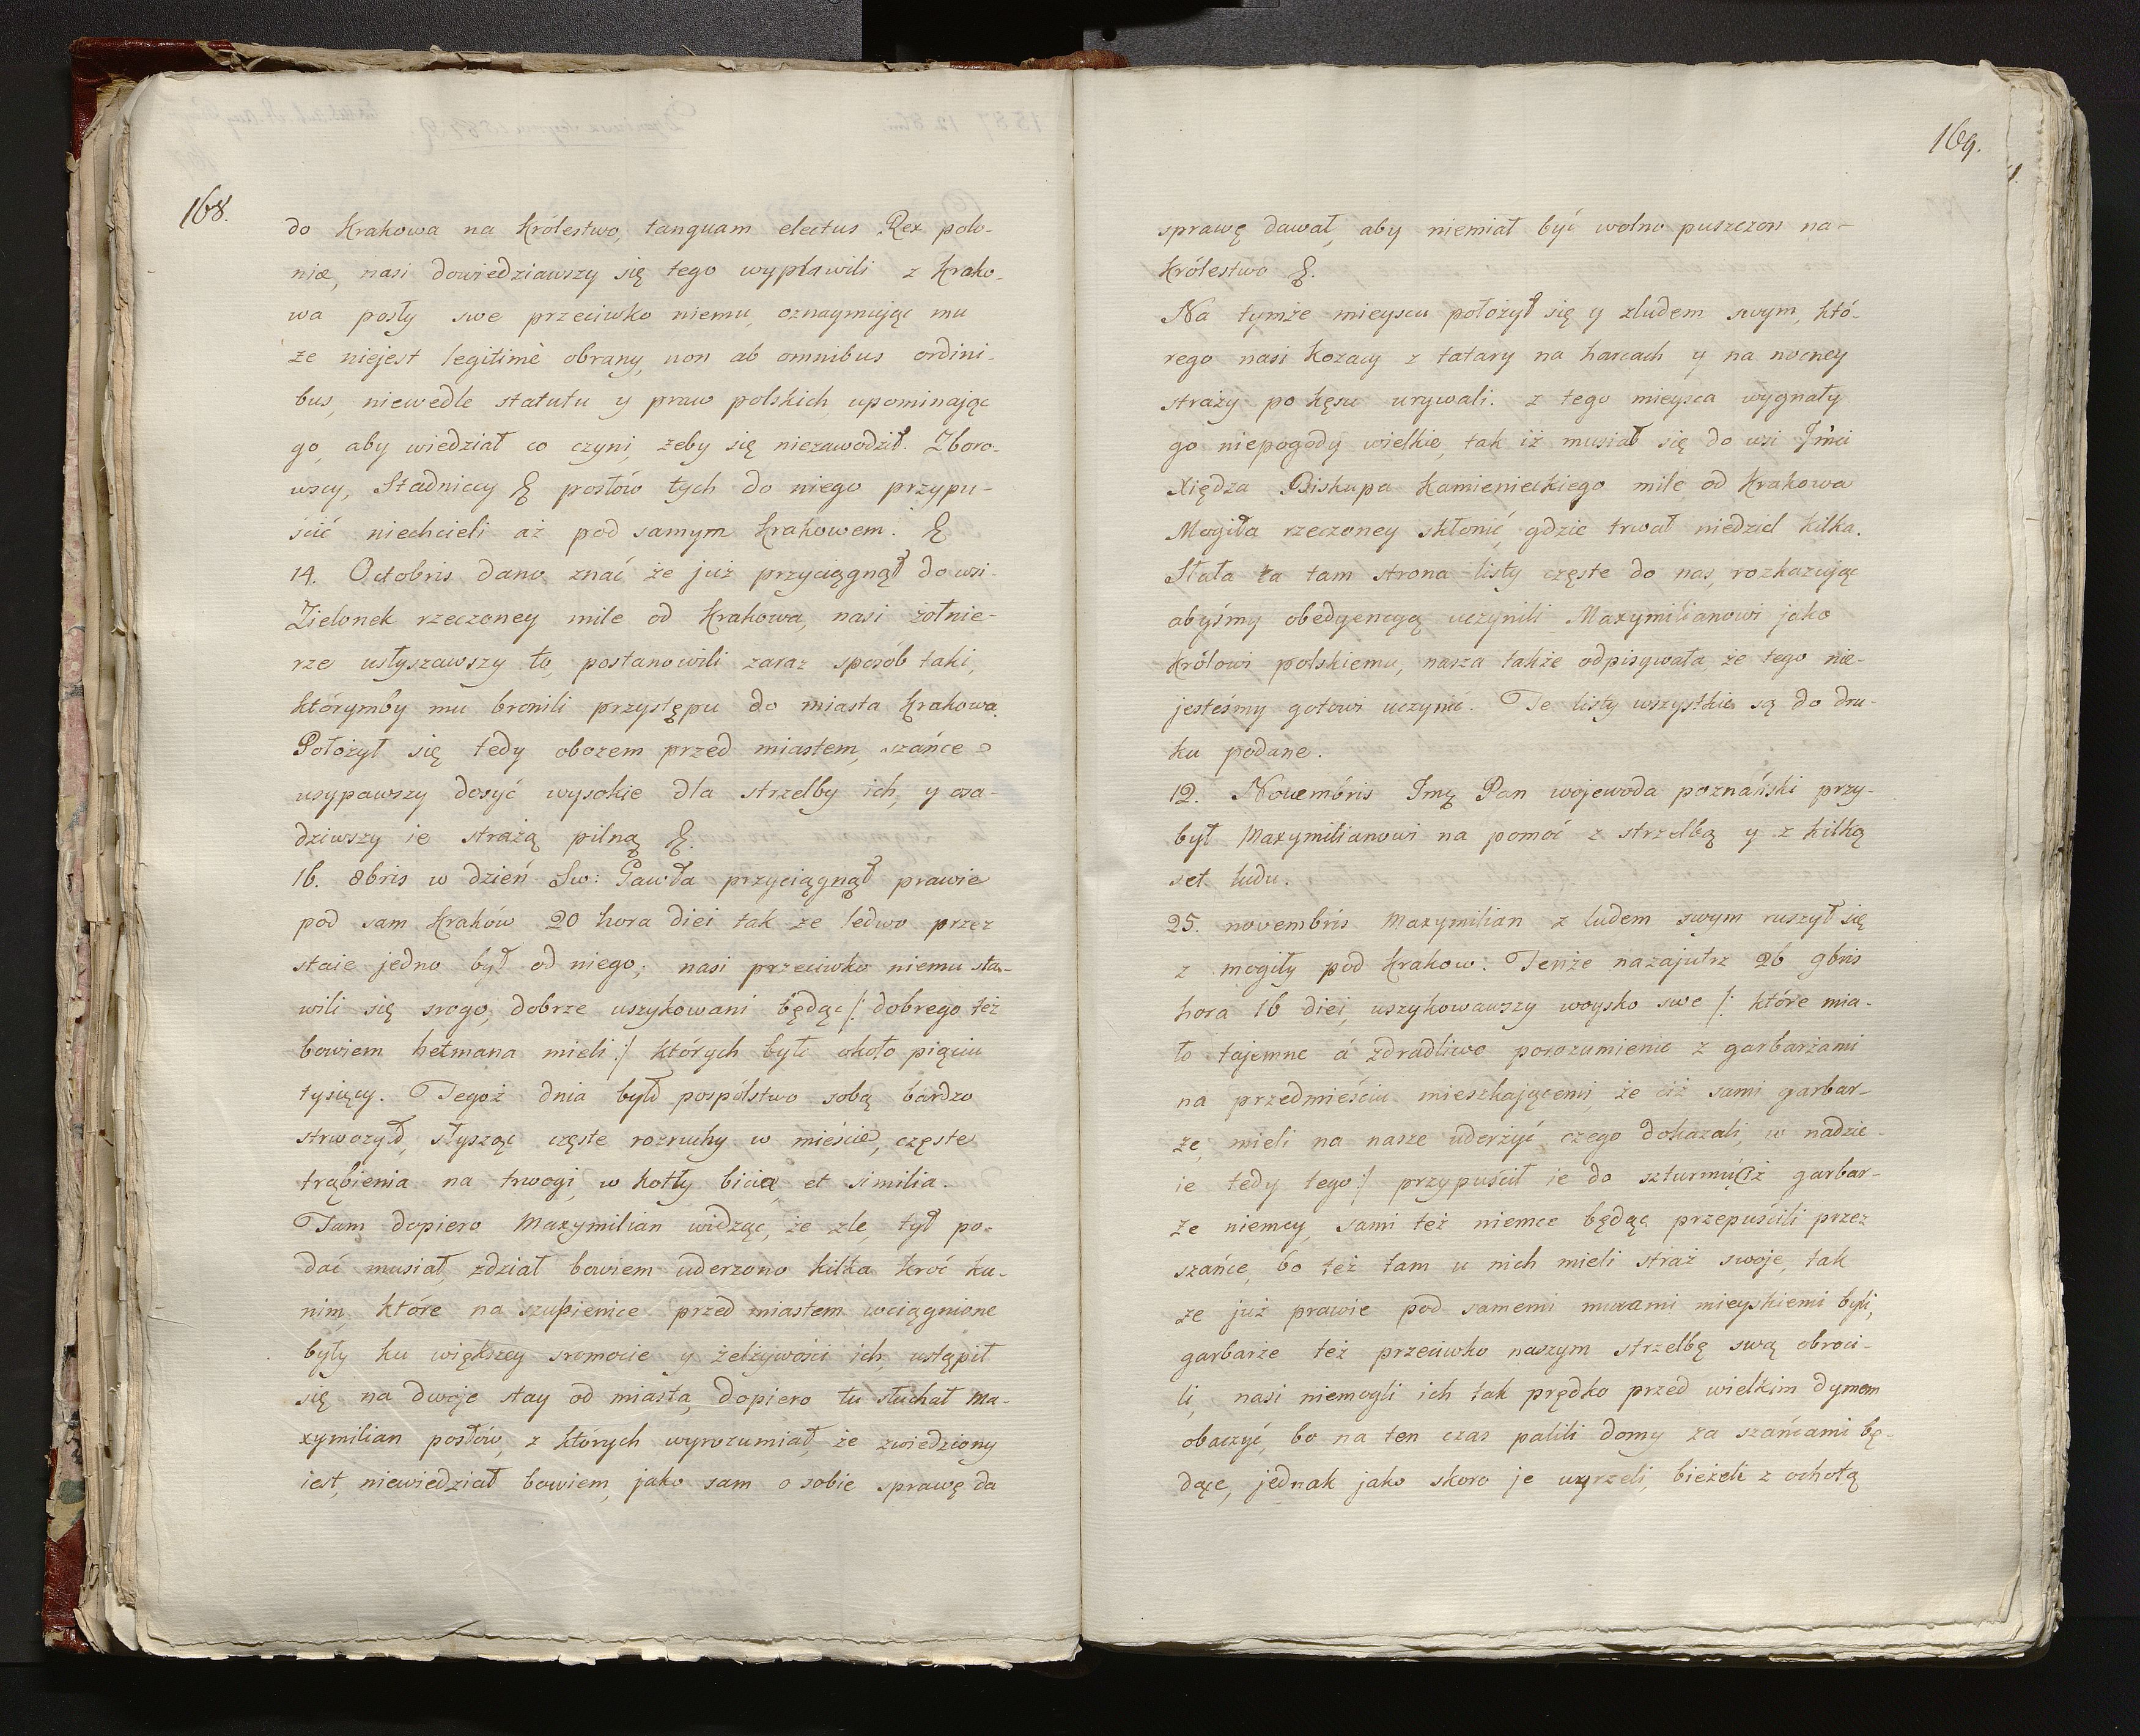 168.
do Krakowa na Królestwo, tanquam electus Rex polo-
niæ, nasi dowiedziawszy się tego wyprawili z Krako-
wa posły swe przeciwko niemu, oznaymując mu
że niejest legitimè obrany, non ab omnibus ordini-
bus, niewedle statutu y praw polskich upominając
go, aby wiedział co czyni, żeby się niezawodził. Zboro-
wscy, Stadniccy & posłów tych do niego przypu-
ścić niechcieli aż pod samym Krakowem. &
14. Octobris dano znać że już przyciągnął do wsi
Zielonek rzeczoney mile od Krakowa, nasi żołnie-
rze usłyszawszy to, postanowili zaraz sposób taki,
którymby mu bronili przystępu do miasta Krakowa.
Położył się tedy obozem przed miastem, szańce
usypawszy dosyć wysokie dla strzelby ich, y osa-
dziwszy ie strażą pilną &.
16. 8bris w dzień Sw: Gawła przyciągnął prawie
pod sam Kraków 20 hora diei tak że ledwo przez
staie jedno był od niego; nasi przeciwko niemu sta-
wili się srogo, dobrze uszykowani będąc /: dobrego też
bowiem hetmana mieli :/ których było około pięciu
tysięcy. Tegoż dnia było pospólstwo sobą bardzo
strwożyło, słysząc częste rozruchy w mieście, częste
trąbienia na trwogi, w kotły bicia, et similia.
Tam dopiero Maxymilian widząc, że zle, tył po-
dać musiał, zdział bowiem uderzono kilka kroć ku-
nim, które na szubienice przed miastem wciągnione
były ku większey sromocie y żelżywości ich, ustąpił
się na dwoje stay od miasta, dopiero tu słuchał Ma-
xymilian posłów, z których wyrozumiał, że zwiedziony
iest, niewiedział bowiem, jako sam o sobie sprawę da
169.
sprawę dawał, aby niemiał być wolno puszczon na-
Królestwo &.
Na tymże mieyscu położył się y zludem swym, któ-
rego nasi Kozacy z tatary na harcach y na nocney
straży po kęsu urywali. z tego mieysca wygnały
go niepogody wielkie, tak iż musiał się do wsi Jmci
Xiędza Biskupa Kamienieckiego mile od Krakowa
Mogiła rzeczoney skłonić, gdzie trwał niedziel kilka.
Słała ta tam strona listy częste do nas, rozkazując
abyśmy obedyencyą uczynili Maxymilianowi jako
Królowi polskiemu, nasza także odpisywała, że tego nie-
jesteśmy gotowi uczynić. Te listy wszystkie są do dru-
ku podane.
12. Novembris Jmę Pan wojewoda poznański przy-
był Maxymilianowi na pomoc z strzelbą y z kilką
set ludu.
25. novembris Maxymilian z ludem swym ruszył się
z mogiły pod Krakow: Tenże nazajutrz 26 9bris
hora 16 diei, uszykowawszy woysko swe /: które mia-
ło tajemne á zdradliwe porozumienie z garbarżami
na przedmieściu mieszkającemi, że ciż sami garbar-
że, mieli na nasze uderżyć, czego dokazali, w nadzie-
ie tedy tego :/ przypuścił ie do szturmu. Ciż garbar-
że niemcy, sami też niemce będąc przepuścili przez
szańce, bo też tam u nich mieli straż swoje, tak
że już prawie pod samemi murami mieyskiemi byli,
garbarże też przeciwko naszym strzelbę swą obroci-
li, nasi niemogli ich tak prędko przed wielkim dymem
obaczyć, bo na ten czas palili domy za szańcami bę-
dące, jednak jako skoro je uyrzeli, bieżeli z ochotą